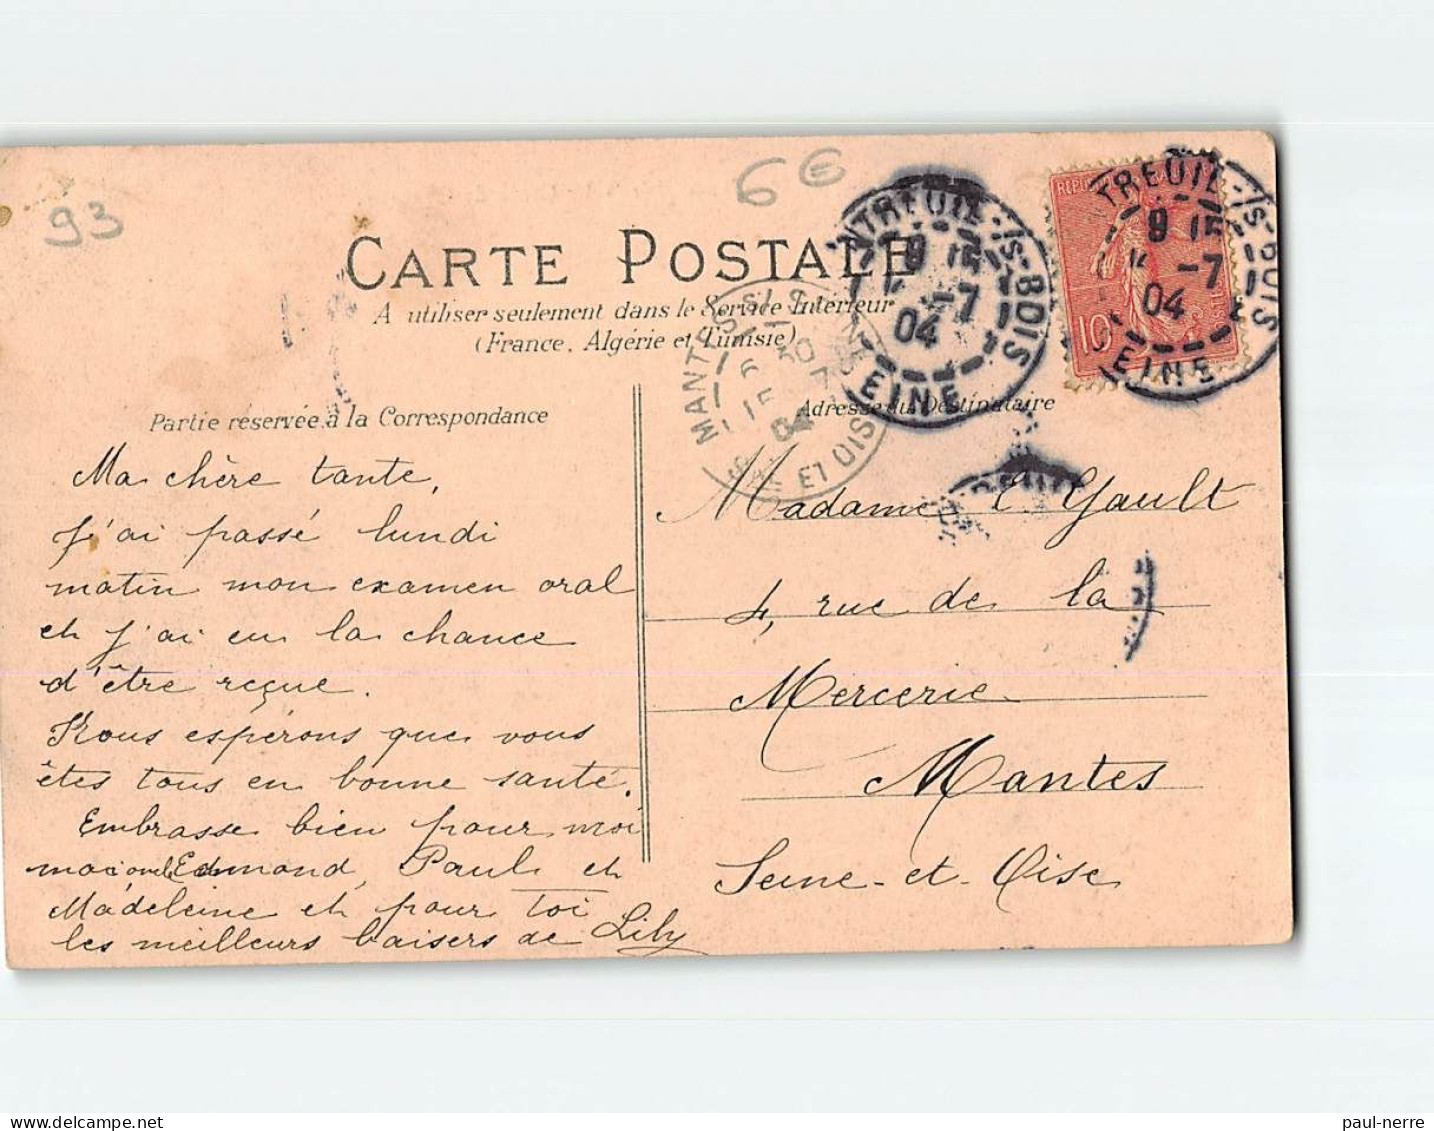 93
6€
CARTE POSTALE
A utiliser seulement dans le Service Intérieur
(France, Algérie et Tunisie)
NTREUIL-/s-BOIS
9 15
-7
04
EINE
REPU
10
TREUIL-/s-BOIS
9 15
-7
04
EINE
MANTES
30
7
04
ET OISE
Partie réservée à la Correspondance
Ma chère tante,
J'ai passé lundi
matin mon examen oral
et j'ai eu la chance
d'être reçue.
Nous espérons que vous
êtes tous en bonne santé.
Embrasse bien pour moi
Edmond, Paul et
Madeleine et pour toi
les meilleurs baisers de Lily
Adresse du Destinataire
Madame E. Gault
4, rue de la
Mercerie
Mantes
Seine-et-Oise
paul-nerre